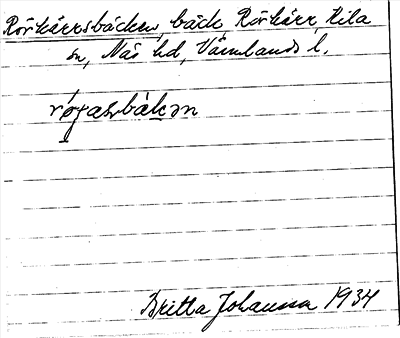 Rörkärrsbäcken, bäck Rörkärr, Kila
sn, Näs hd, Värmlands l.
Britta Johansson 1934